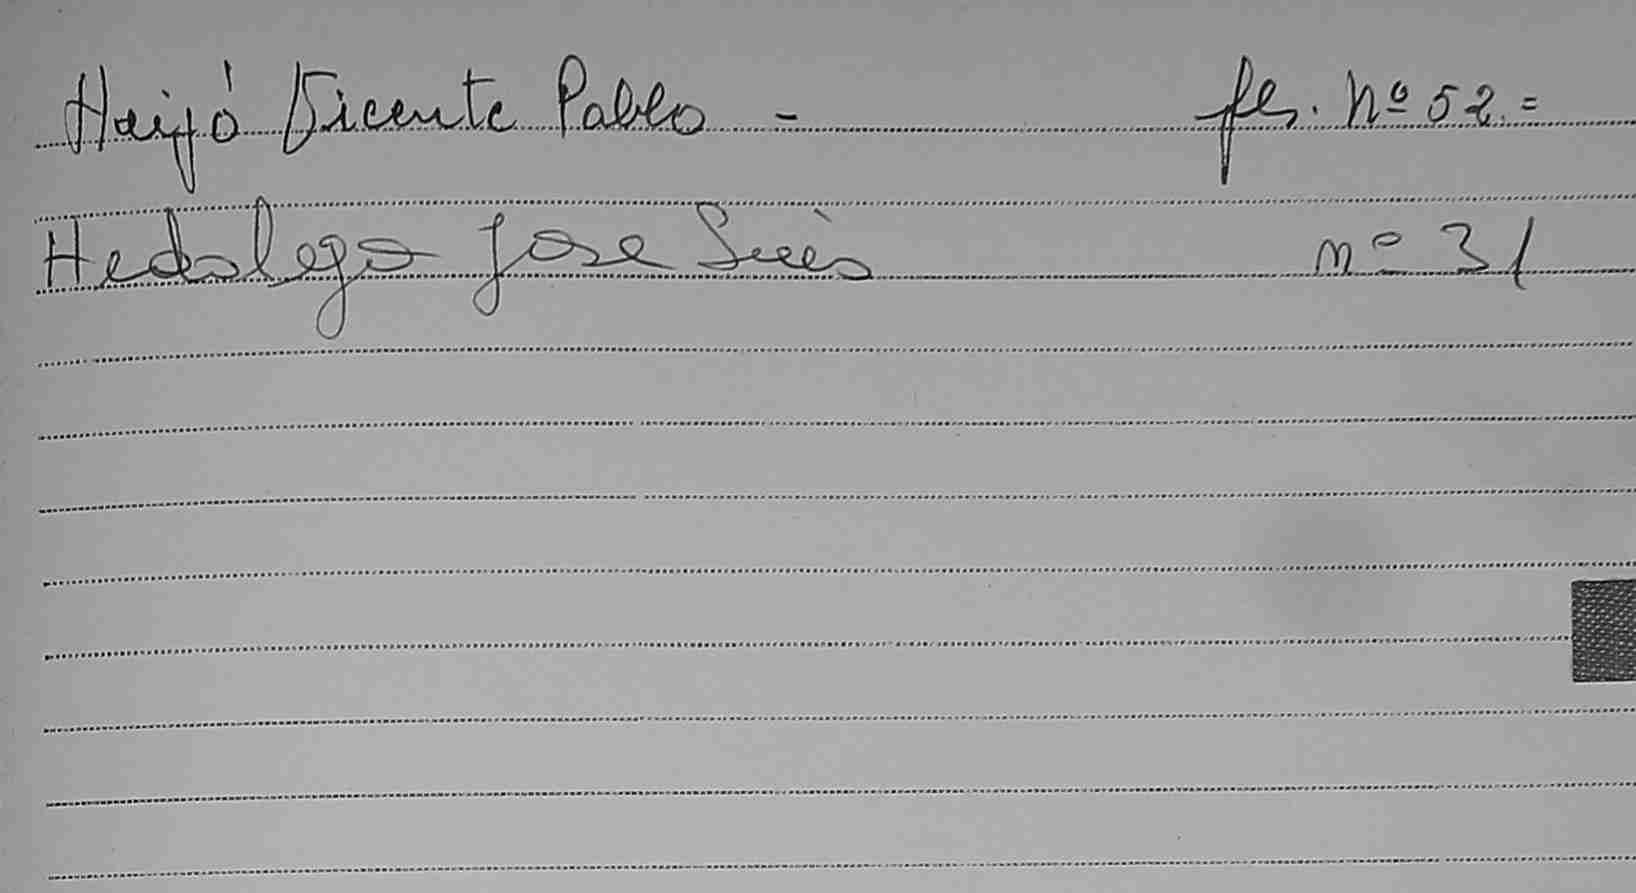 Haiyó Vicente Pablo - fls. Nº 52.=
Hedalego Jose Luis nº 31